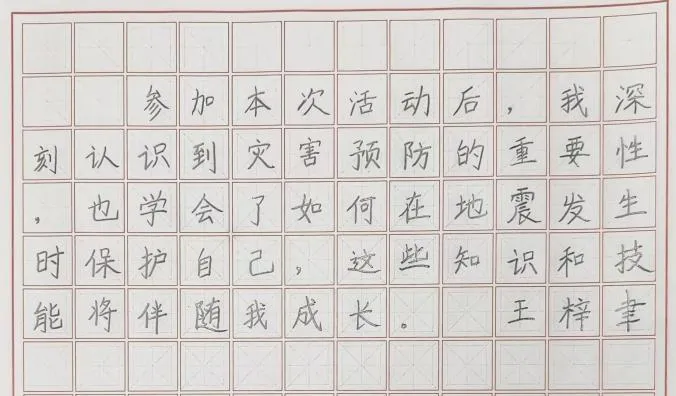 参加本次活动后，我深
刻认识到灾害预防的重要性
，也学会了如何在地震发生
时保护自己，这些知识和技
能将伴随我成长。 王梓聿